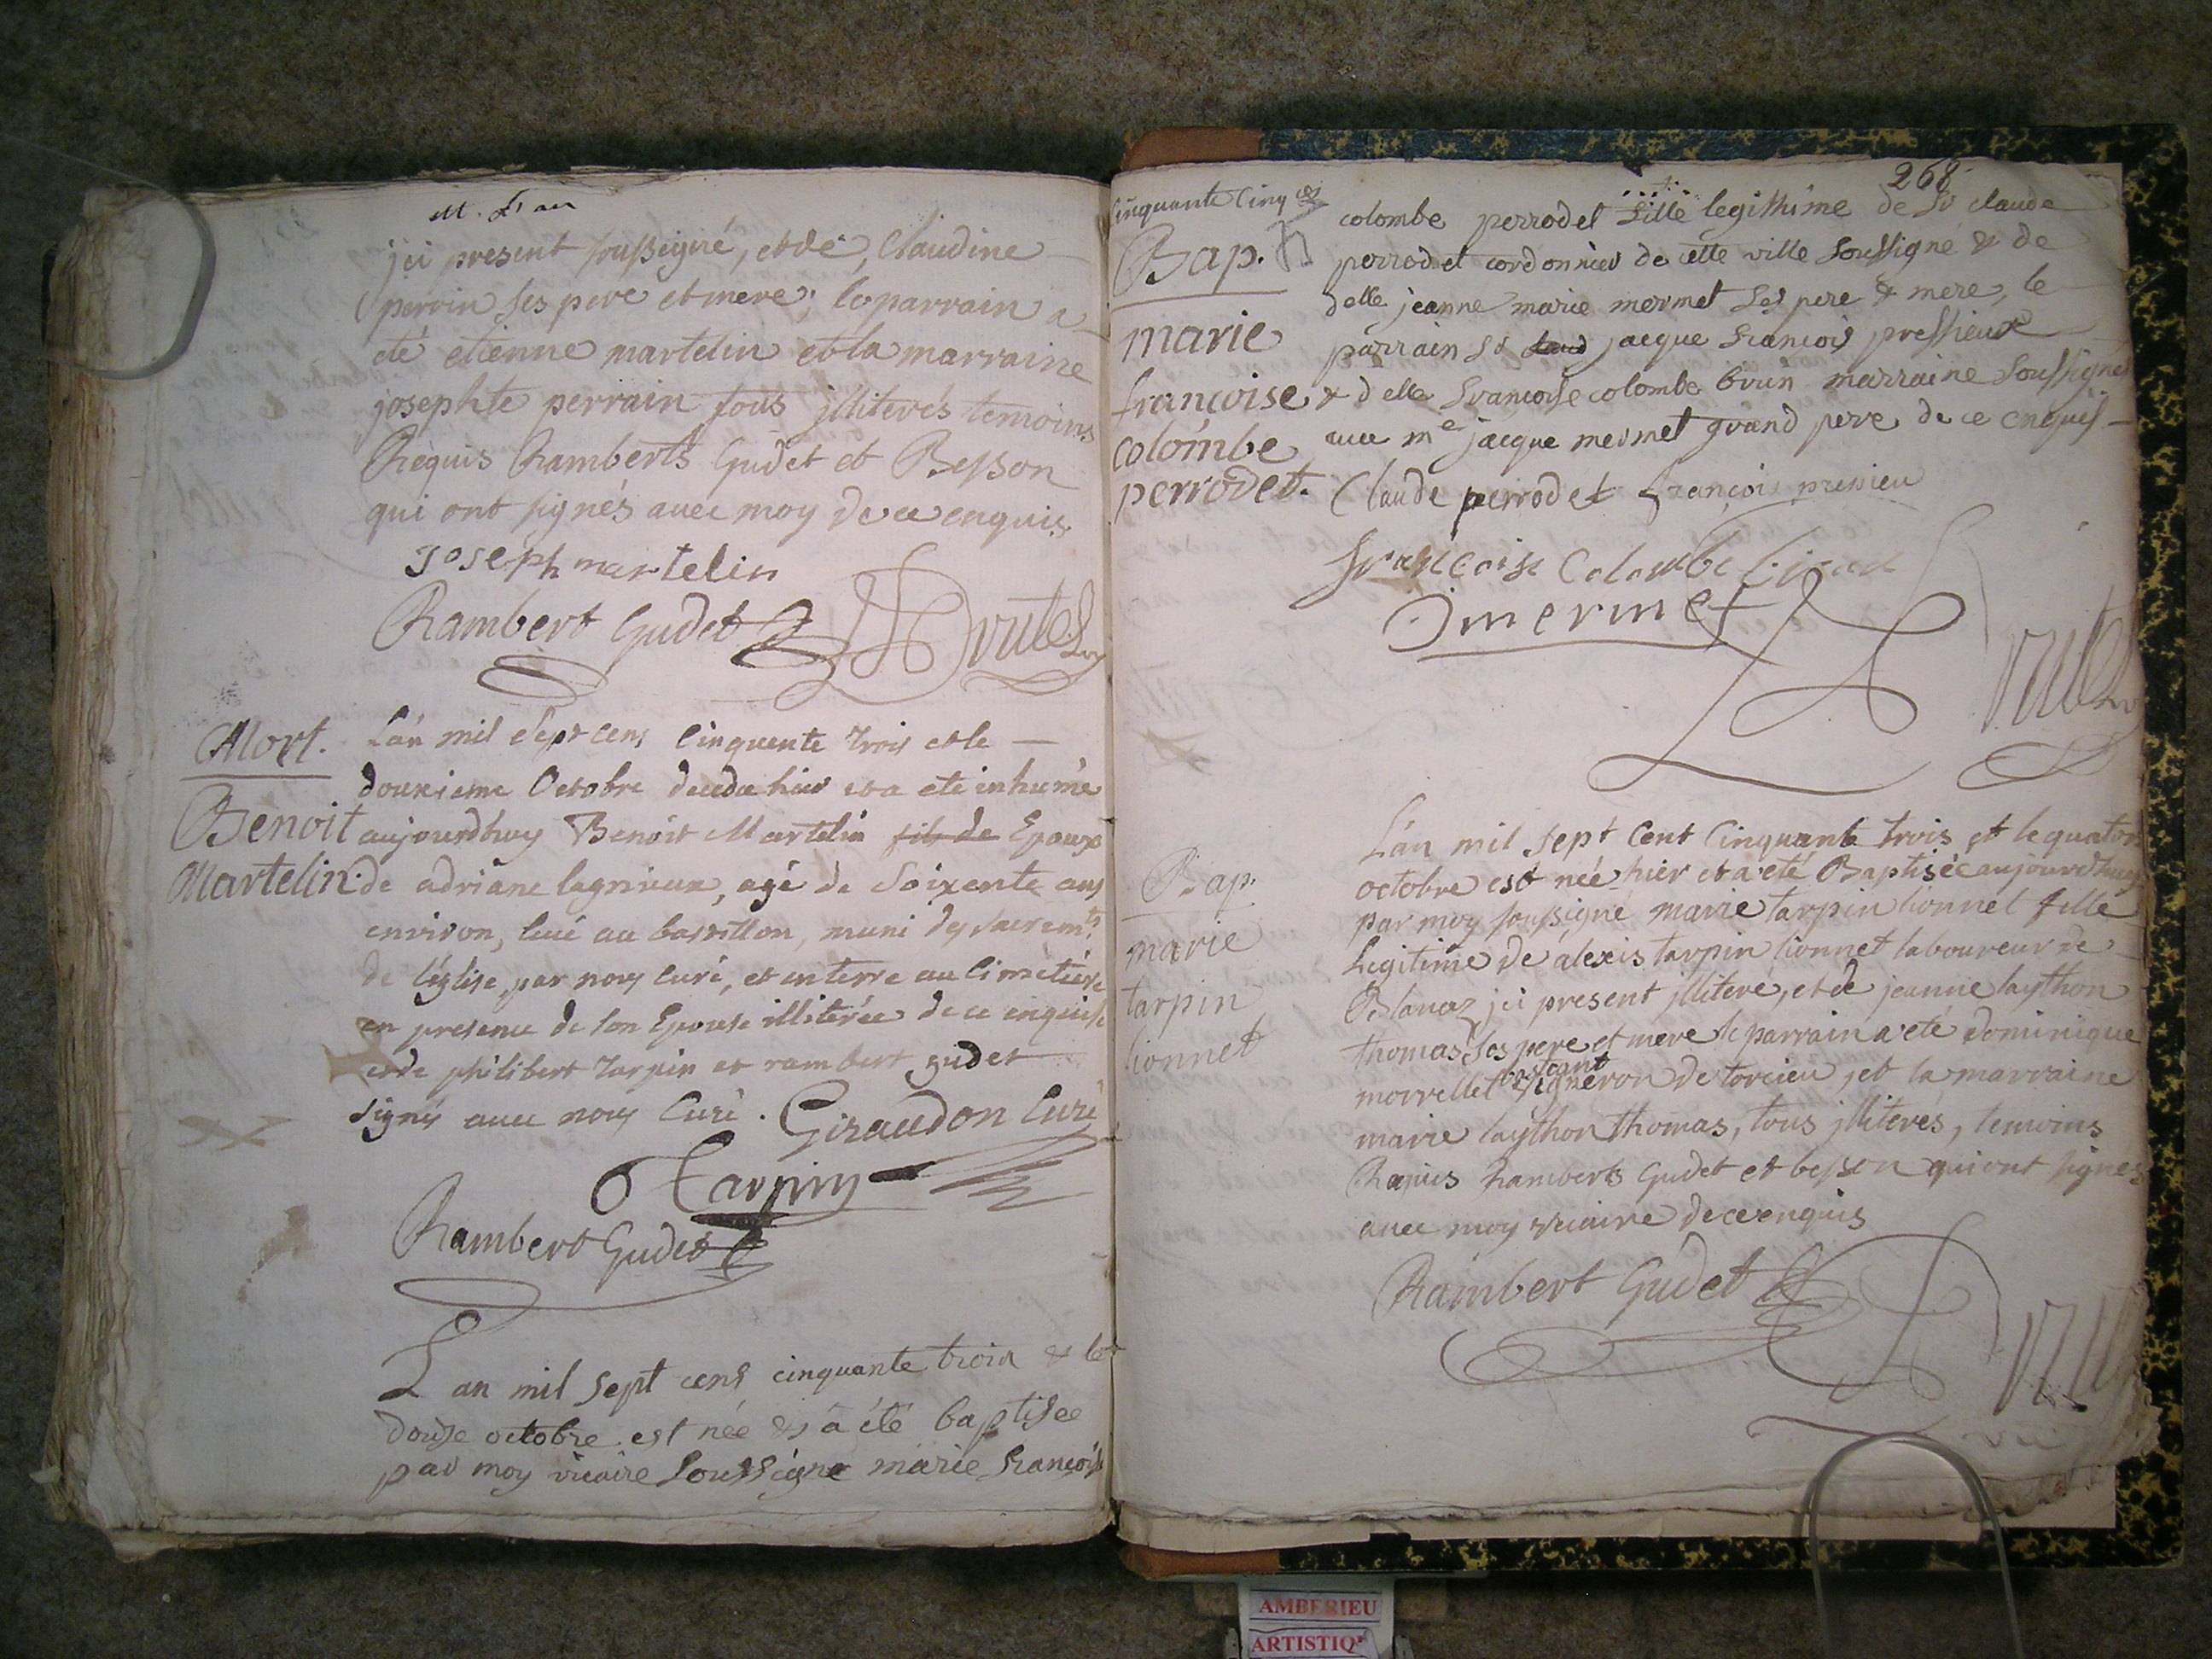 M. L'an
jci present soussigné, et de, Claudine
perrin ses pere et mere, le parrain a
eté etienne martelin et la marraine
josephte perrain tous jlliterés temoins
Requis Ramberts Gudet et Besson
qui ont signés avec moy de ce enquis
Joseph martelin
Rambert Gudet
Mort.
Benoit
Martelin.
L'an mil sept cens cinquente trois et le
douxieme Octobre decedu hier et a eté inhumé
aujourdhuy Benoit Martelin fils de Epoux
de adriane lagnieux, agé de soixente ans
environ, au bastillon, muni des sacremts
de l'église, par nous curé, et enterre au cimetiere
en presence de son Epouse illiterée de ce enquise
et de philibert Tarpin et rambert gudet
signés avec nous curé. Giraudon Curé
Tarpin
Rambert Gudet
L'an mil sept cens cinquante trois & le
douze octobre est née & a été baptisee
par moy vicaire soussigné marie françoise
268
cinquante cinq
Bap.
marie
françoise
colombe
perrodet.
colombe perrodet fille legithime de sr claude
perrodet cordonnier de cette ville soussigné & de
delle jeanne marie mermet ses pere & mere, le
parrain sr jacque francois pressieux
& delle francoise colombe brun marraine soussignes
avec me jacque mermet grand pere de ce enquis
Claude perrodet françois pressieu
françoise Colombe brun
Jmermet
Bap.
marie
tarpin
lionnet
L'an mil sept Cent Cinquante trois et le quatorze
octobre est née hier et a eté Baptisée aujourdhuy
par moy soussigné marie tarpin lionnet fille
Legitime de alexis tarpin lionnet laboureur de
Blanaz jci present jlliteré, et de jeanne laython
thomas ses pere et mere le parrain a eté dominique
morrellet vigneron de torcieu et la marraine
marie laython thomas, tous jlliterés, temoins
Requis Ramberts Gudet et besson qui ont signes
avec moy vicaire de ce enquis
Rambert Gudet
AMBERIEU
ARTISTIQ